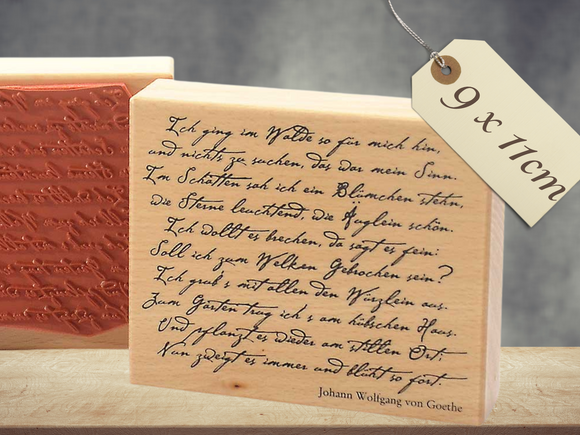 Ich ging im Walde so für mich hin,
und nichts zu suchen, das war mein Sinn.
Im Schatten sah ich ein Blümchen stehn,
wie Sterne leuchtend, wie Äuglein schön.
Ich wollt es brechen, da sagt es fein:
Soll ich zum Welken Gebrochen sein?
Ich grub's mit allen den Würzlein aus.
Zum Garten trug ich's am hübschen Haus.
Und pflanzt es wieder am stillen Ort;
Nun zweigt es immer und blüht so fort.
Johann Wolfgang von Goethe
9 x 11cm